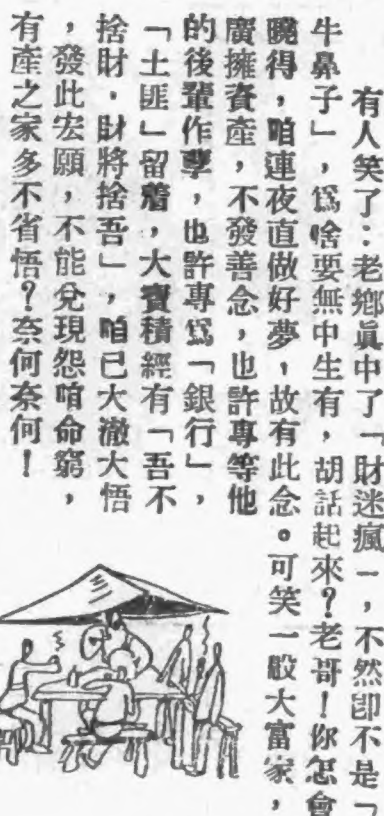 有人笑了：老鄉眞中了「財迷瘋」，不然卽不是「
牛鼻子」，爲啥要無中生有，胡話起來？老哥！你怎會
曉得，咱連夜直做好夢，故有此念。可笑一般大富家，
廣擁資產，不發善念，也許專等他
的後輩作孽，也許專爲「銀行」，
「土匪」留着，大寶積經有「吾不
捨財，財將捨吾」，咱已大澈大悟
，發此宏願，不能兌現怨咱命窮，
有產之家多不省悟？奈何奈何！